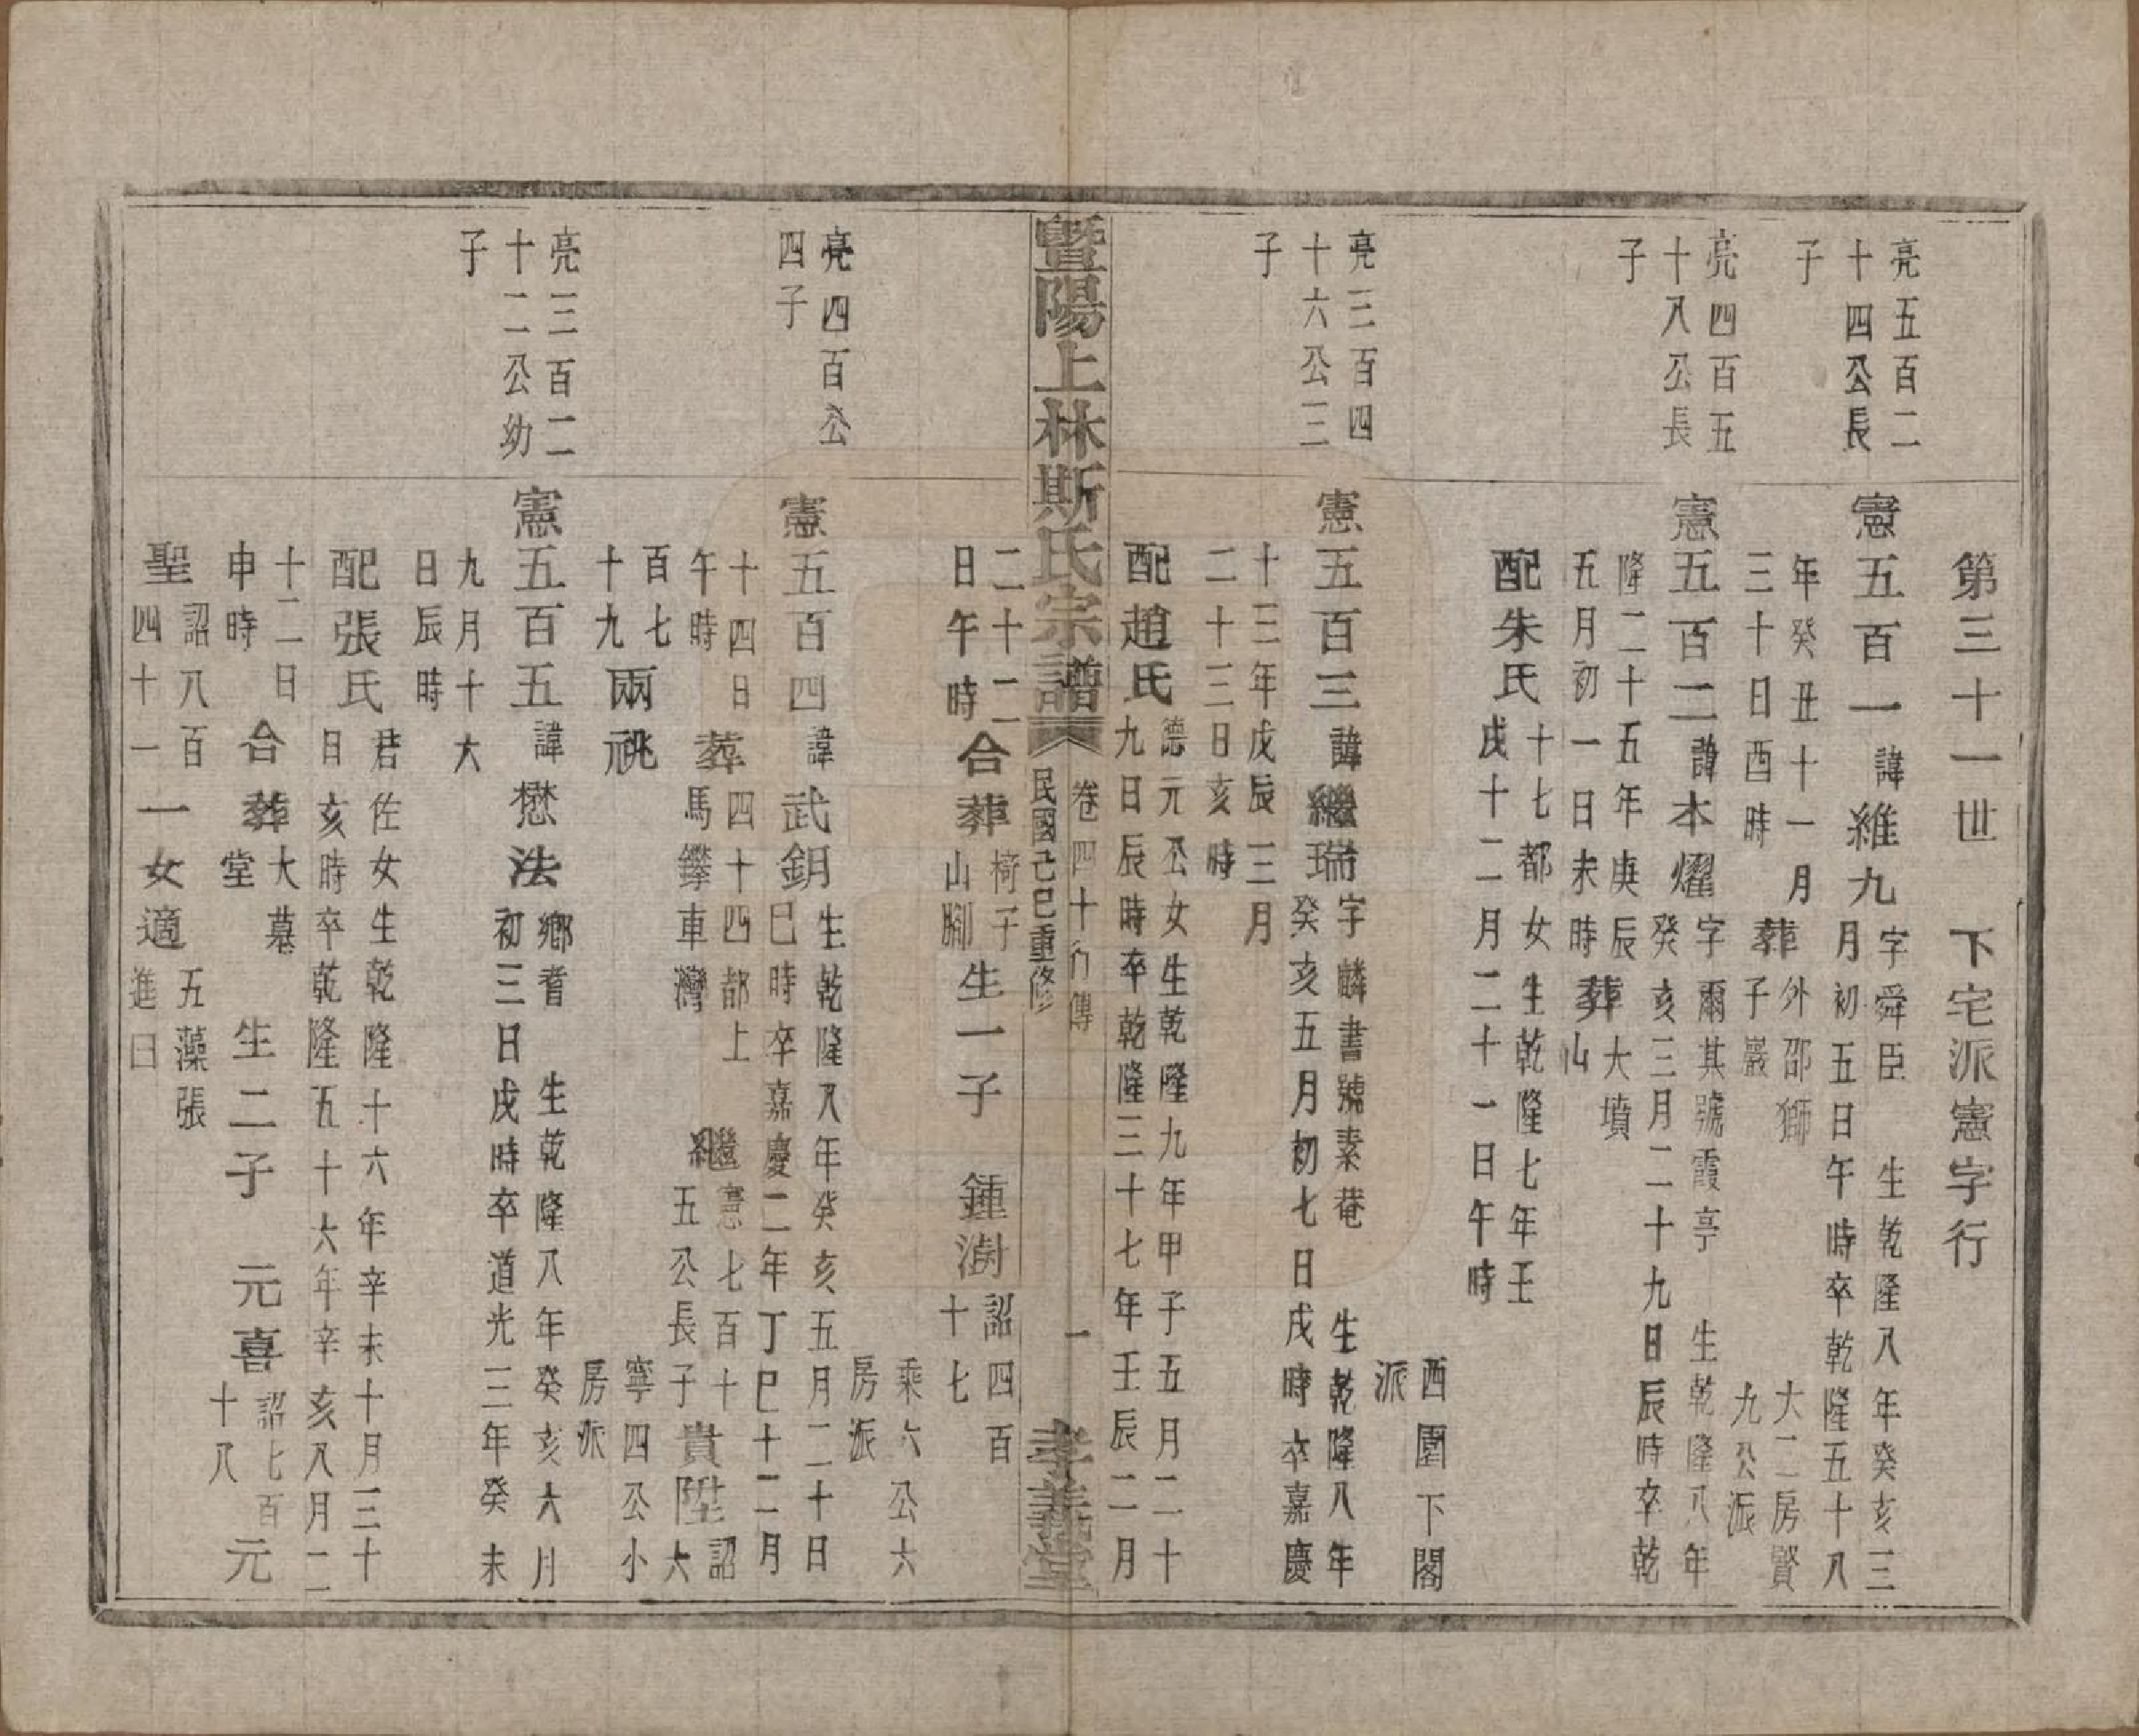 第三十一世　下宅派憲字行
亮五百二
十四公長
子
憲五百一諱維九
字舜臣　生乾隆八年癸亥三
月初五日午時卒乾隆五十八
年癸丑十一月
三十日酉時
葬
外邵獅
子巖
大二房賢
九公派
亮四百五
十八公長
子
憲五百二諱本燿
字爾其號霞亭　生乾隆八年
癸亥三月二十九日辰時卒乾
隆二十五年庚辰
五月初一日未時
葬
大墳
山
配朱氏
十七都女生乾隆七年壬
戌十二月二十一日午時
西園下閣
派
亮三百四
十六公三
子
憲五百三諱繼瑞
字麟書號素菴　生乾隆八年
癸亥五月初七日戌時卒嘉慶
十三年戊辰三月
二十三日亥時
配趙氏
德元公女生乾隆九年甲子五月二十
九日辰時卒乾隆三十七年壬辰二月
二十二
日午時
合葬
椅子
山腳
生一子　鍾澍
詔四百
十七
乘六公六
房派
暨陽上林斯氏宗譜
卷四十行傳
民國己巳重修
一
孝義堂
亮四百公
四子
憲五百四諱武鈅
生乾隆八年癸亥五月二十日
巳時卒嘉慶二年丁巳十二月
十四日
午時
葬
四十四都上
馬鑻車灣
繼
憲七百十
五公長子
貴陞
詔
六
百七
十九
兩祧
寧四公小
房派
亮三百二
十二公幼
子
憲五百五諱懋法
鄉耆　生乾隆八年癸亥六月
初三日戌時卒道光三年癸未
九月十六
日辰時
配張氏
君佐女生乾隆十六年辛未十月三十
日亥時卒乾隆五十六年辛亥八月二
十二日
申時
合葬
大墓
堂
生二子　元喜
詔七百
十八
元
聖
詔八百
四十一
一女適
五藻張
進日